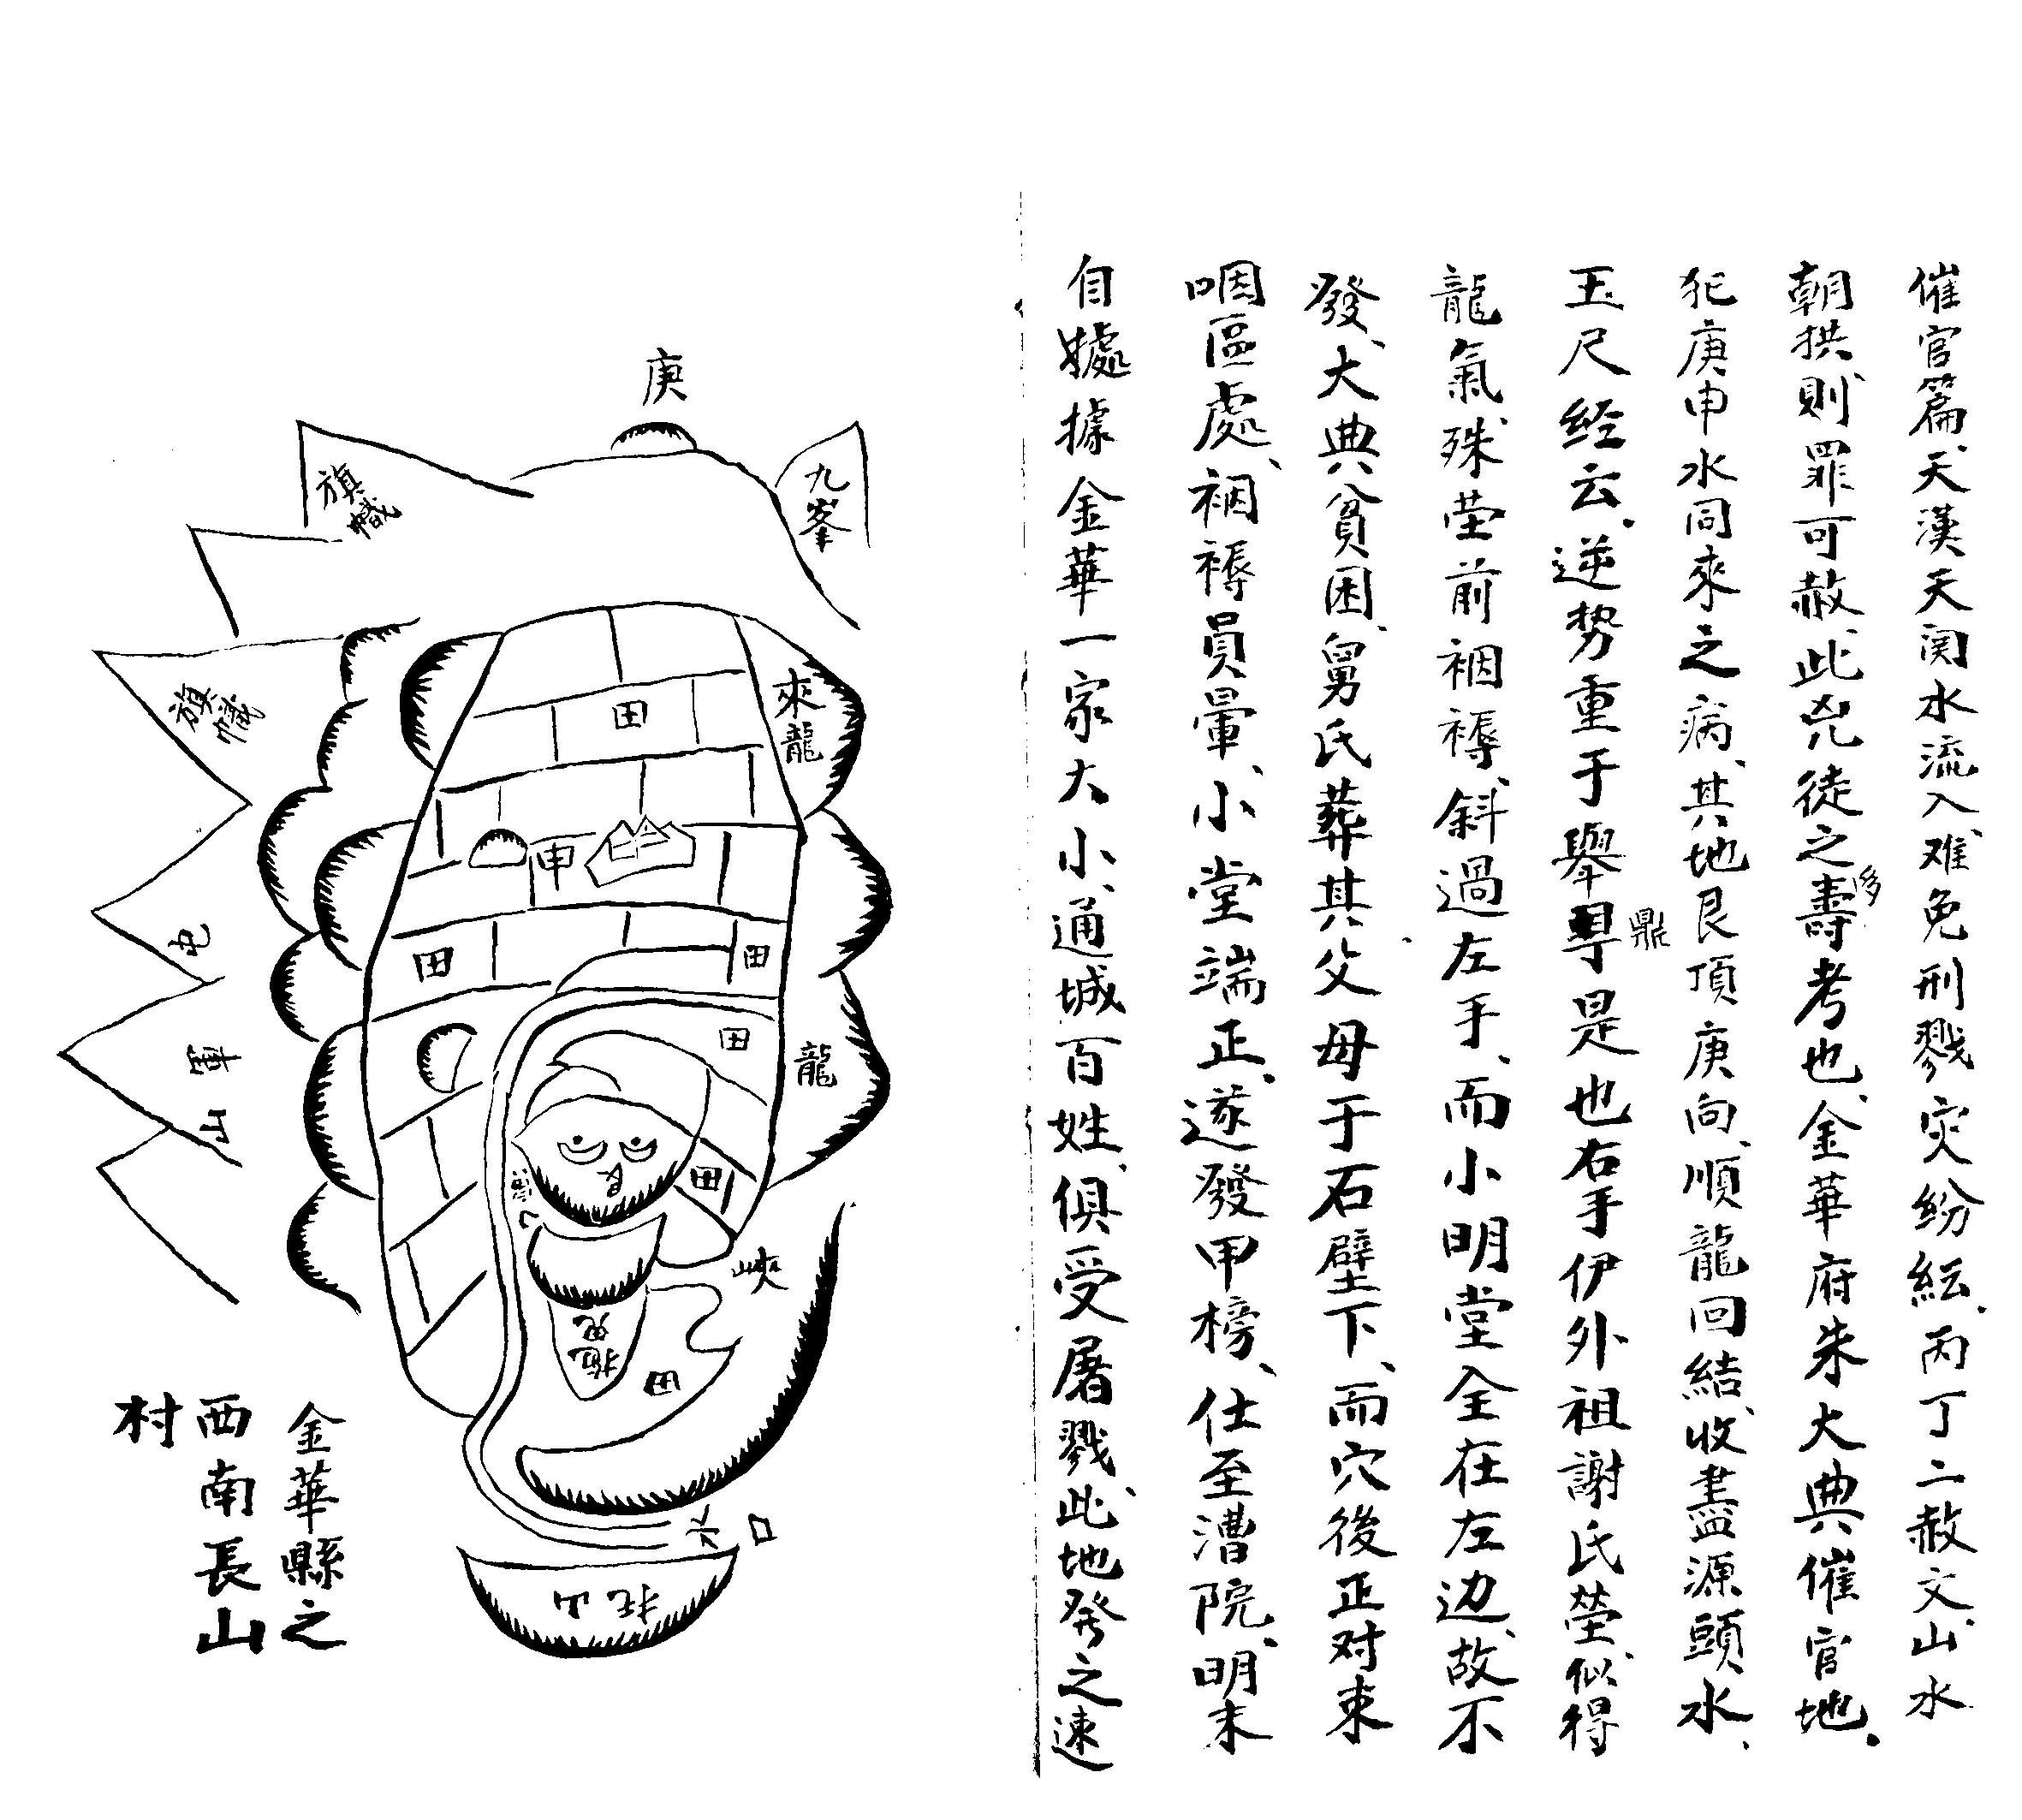 催官篇、天漢天関水流入、难免刑戮灾紛紜、丙丁二赦文、山水
朝拱、則罪可赦、此兇徒之壽考也、金華府朱大典催官地。
多
犯庚申水同來之病、其地艮頂庚向、順龍回結、收盡源頭水、
玉尺经云、逆势重于舉㝵是也右手伊外祖謝氏塋、似得
鼎
龍氣、殊塋前裀褥、斜過左手、而小明堂全在左边、故不
發、大典貧困、舅氏葬其父母于石壁下、而穴後正对束
咽區處、裀褥員暈、小堂端正、遂發甲榜、仕至漕院、明末
自據據金華一家大小、通城百姓、俱受屠戮、此地癸之速
庚
九峯
旗幟
旗幟
來龍
田
申
田
田
屯軍山
龍
田
田
艮
峽
拖鬼
田
水口
托山
金華縣之
西南長山
村